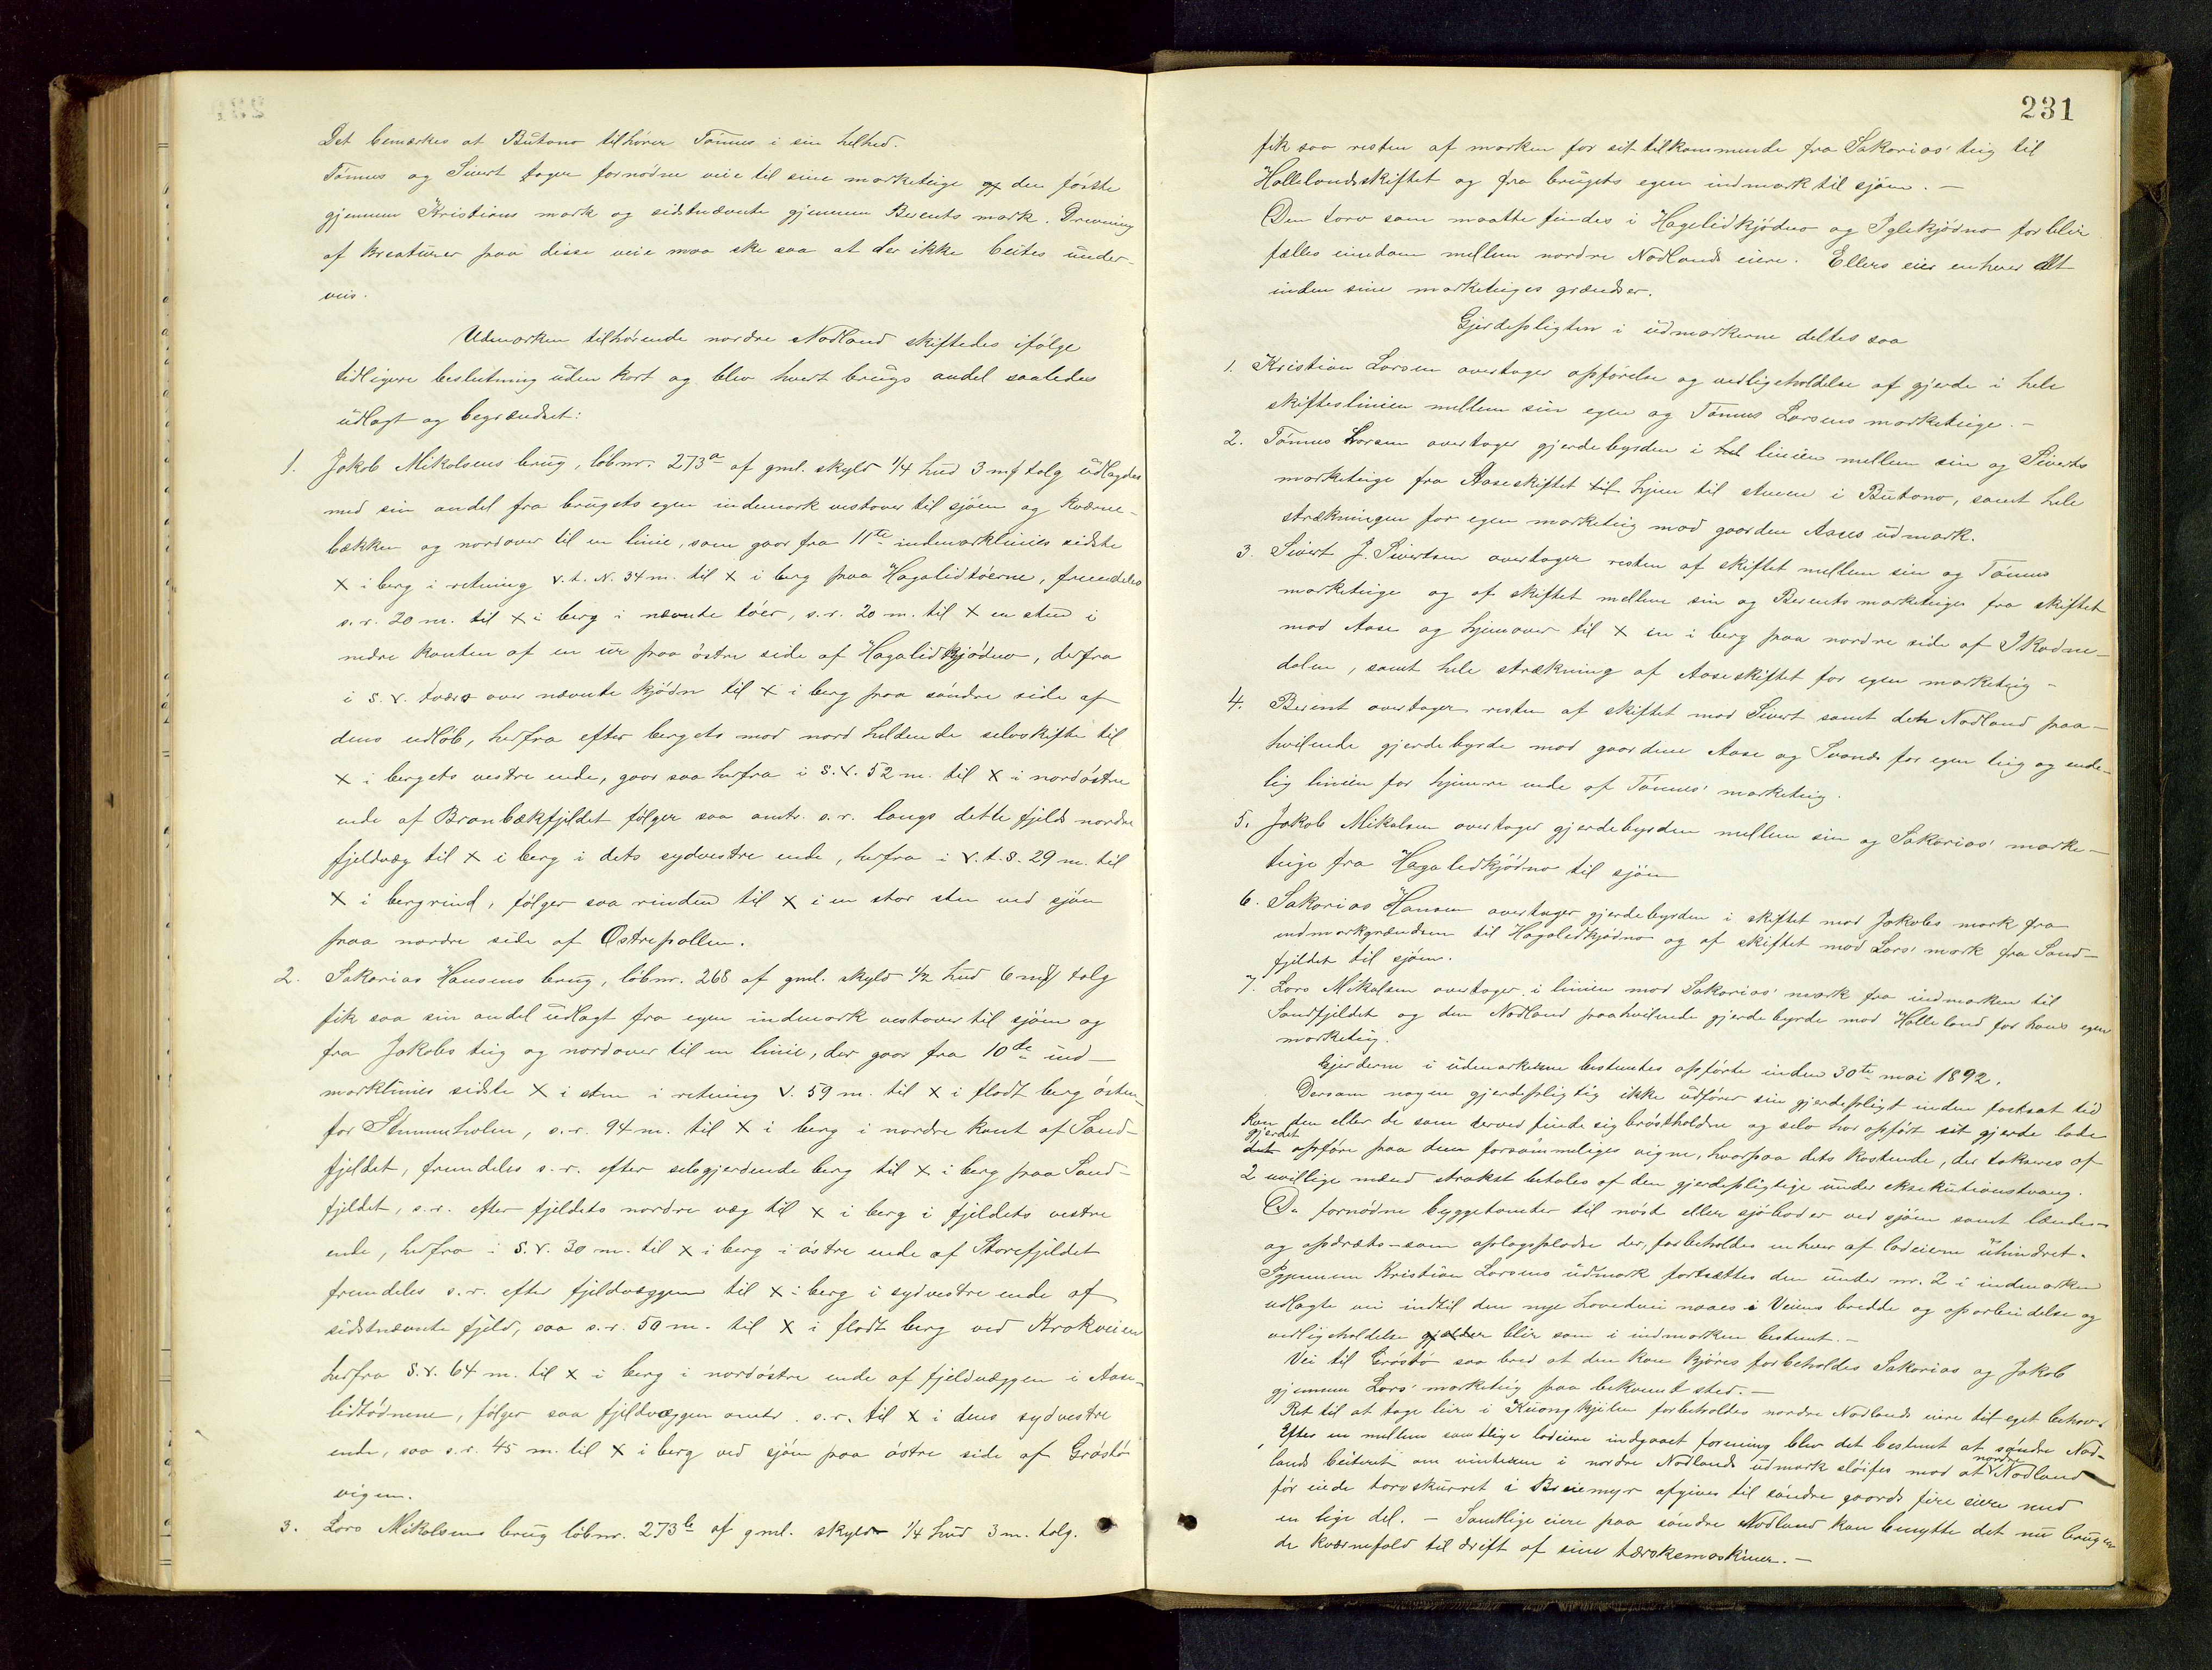 Det bemærkes at Butono tilhører Tønnes i sin helhed.
Tønnes og Sivert tager fornødne veie til sine marketeige og den første
gjennem Kristians mark og sidstnævnte gjennem Berents mark. Drivning
af kreaturer paa disse veie maa ske saa at der ikke beites under-
veis.
Udmarken tilhørende nordre Nodland skiftedes ifølge
tidligere beslutning uden kort og blev hvert brugs andel saaledes
udlagt og begrændset:
1. Jakob Mikalsens brug, løbnr. 273a af gml. skyld 1/4 hud 3 mſ talg udlagdes
med sin andel fra brugets egen indemark vestover til sjøen og Kværne-
bækken og nordover til en linie, som gaar fra 11te indemarklinies sidste
X i berg i retning v.t.N. 34 m. til X i berg paa Hagalidtóerne, fremdeles
s.r. 20 m. til X i berg i nævnte tóer, s.r. 20 m. til X en sten i
nedre kanten af en ur paa østre side af Hagalidkjødno, derfra
i S.V. tværs over nævnte kjødn til X i berg paa søndre side af
dens udløb, herfra efter bergets mod nord heldende selvskifte til
X i bergets vestre ende, gaar saa herfra i S.V. 52 m. til X i nordøstre
ende af Branbækfjeldet følger saa omtr. s.r. langs dette fjelds nordre
fjeldvæg til X i berg i dets sydvestre ende, herfra i V.t.S. 29 m. til
X i bergrind, følger saa rinden til X i en stor sten ved sjøen
paa nordre side af Østrepollen.
2. Sakarias Hansens brug, løbnr. 268 af gml. skyld 1/2 hud 6 mſ talg
fik saa sin andel udlagt fra egen indemark vestover til sjøen og
fra Jakobs teig og nordover til en linie, der gaar fra 10de ind-
marklinies sidste X i sten i retning V. 59 m. til X i fladt berg østen-
for Stemmeholen, s.r. 94 m. til X i berg i nordre kant af Sand-
fjeldet, fremdeles s.r. efter selvgjerdende berg til X i berg paa Sand-
fjeldet, s.r. efter fjeldets nordre væg til X i berg i fjeldets vestre
ende, herfra i S.V. 30 m. til X i berg i østre ende af Storefjeldet
fremdeles s.r. efter fjeldvæggen til X i berg i sydvestre ende af
sidstnævnte fjeld, saa s.r. 50 m. til X i fladt berg ved Krokveien
herfra S.V. 64 m. til X i berg i nordøstre ende af fjeldvæggen i Aase-
lidtødnene, følger saa fjeldvæggen omtr. s.r. til X i dens sydvestre
ende, saa s.r. 45 m. til X i berg ved sjøen paa østre side af Grøstø
vigen.
3. Lars Mikalsens brug løbnr. 273b af gml. skyld 1/4 hud 3 m. talg.
231
fik saa resten af marken for sit tilkommende fra Sakarias' teig til
Hollelandsskiftet og fra brugets egen indmark til sjøen. —
Den torv som maatte findes i Hagalidkjødno og Iglekjødno forblir
fælles eiendom mellem nordre Nodlands eiere. Ellers eier enhver alt
inden sine marketeiges grændser.
Gjerdepligten i udmarkerne deltes saa
1. Kristian Larsen overtager opførelse og vedligeholdelse af gjerde i hele
skifteslinien mellem sin egen og Tønnes Larsens marketeige. —
2. Tønnes Larsen overtager gjerdebyrden i hel linien mellem sin og Siverts
marketeige fra Aaseskiftet til hjem til stenen i Butono, samt hele
strækningen for egen marketeig mod gaarden Aases udmark.
3. Sivert J. Sivertsen overtager resten af skiftet mellem sin og Tønnes
marketeige og af skiftet mellem sin og Berents marketeiger fra skiftet
mod Aase og hjemover til X en i berg paa nordre side af Skodne-
dalen, samt hele strækning af Aaseskiftet for egen marketeig —
4. Berent overtager resten af skiftet mod Sivert samt den Nodland paa-
hvilende gjerdebyrde mod gaardene Aase og Svanes for egen teig og ende-
lig linien for hjemre ende af Tønnes' marketeig.
5. Jakob Mikalsen overtager gjerdebyrden mellem sin og Sakarias' marke-
teige fra Hagalidkjødno til sjøen
6. Sakarias Hansen overtager gjerdebyrden i skiftet mod Jakobs mark fra
indmarkgrændsen til Hagalidkjødno og af skiftet mod Lars' mark fra Sand-
fjeldet til sjøen.
7. Lars Mikalsen overtager i linien mod Sakarias' mark fra indmarken til
Sandfjeldet og den Nodland paahvilende gjerdebyrde mod Holleland for hans egen
marketeig.
Gjerderne i udemarkerne bestemtes opførte inden 30te mai 1892.
Dersom nogen gjerdepligtig ikke udfører sin gjerdepligt inden fastsat tid
kan den eller de som derved finde sig brøstholdne og selv har opført sit gjerde lade
gjerdet
det opføre paa den forsømmeliges vegne, hvorpaa dets kostende, der takseres af
2 uvillige mænd strakst betales af den gjerdepligtige under eksekutionstvang.
De fornødne byggetomter til nøst eller sjøboder ved sjøen samt lændes-
og opdræts- som oplagspladse der, forbeholdes enhver af lodeierne uhindret.
Igjennem Kristian Larsens udmark fortsættes den under nr. 2 i indmarken
udlagte vei indtil den nye hovedvei naaes i Veiens bredde og oparbeidelse og
vedligeholdelse gjælder blir som i indmarken bestemt. —
Vei til Grøstø saa bred at den kan kjøres forbeholdes Sakarias og Jakob
gjennem Lars' marketeig paa bekvemt sted. —
Ret til at tage leir i Kuongkjilen forbeholdes nordre Nodlands eiere til eget behov.
Efter en mellem samtlige lodeiere indgaaet forening blev det bestemt at søndre Nod-
nordre
lands beiteret om vinteren i nordre Nodlands udmark sløifes mod at Nodland
før eiede torvskurret i Breiemyr afgives til søndre gaards fire eiere med
en lige del. — Samtlige eiere paa søndre Nodland kan benytte det nu brugen-
de kværnefald til drift af sine tærskemaskiner. —